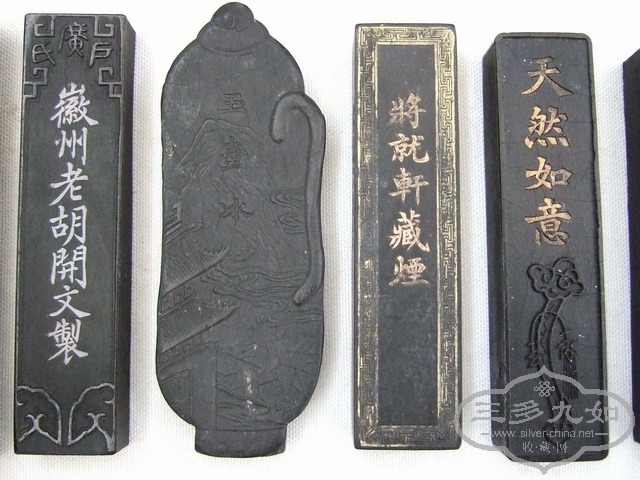 徽州老胡開文製
玉壷冰
將就軒藏煙
天然如意
三多九如
www.silver-china.net
收藏网